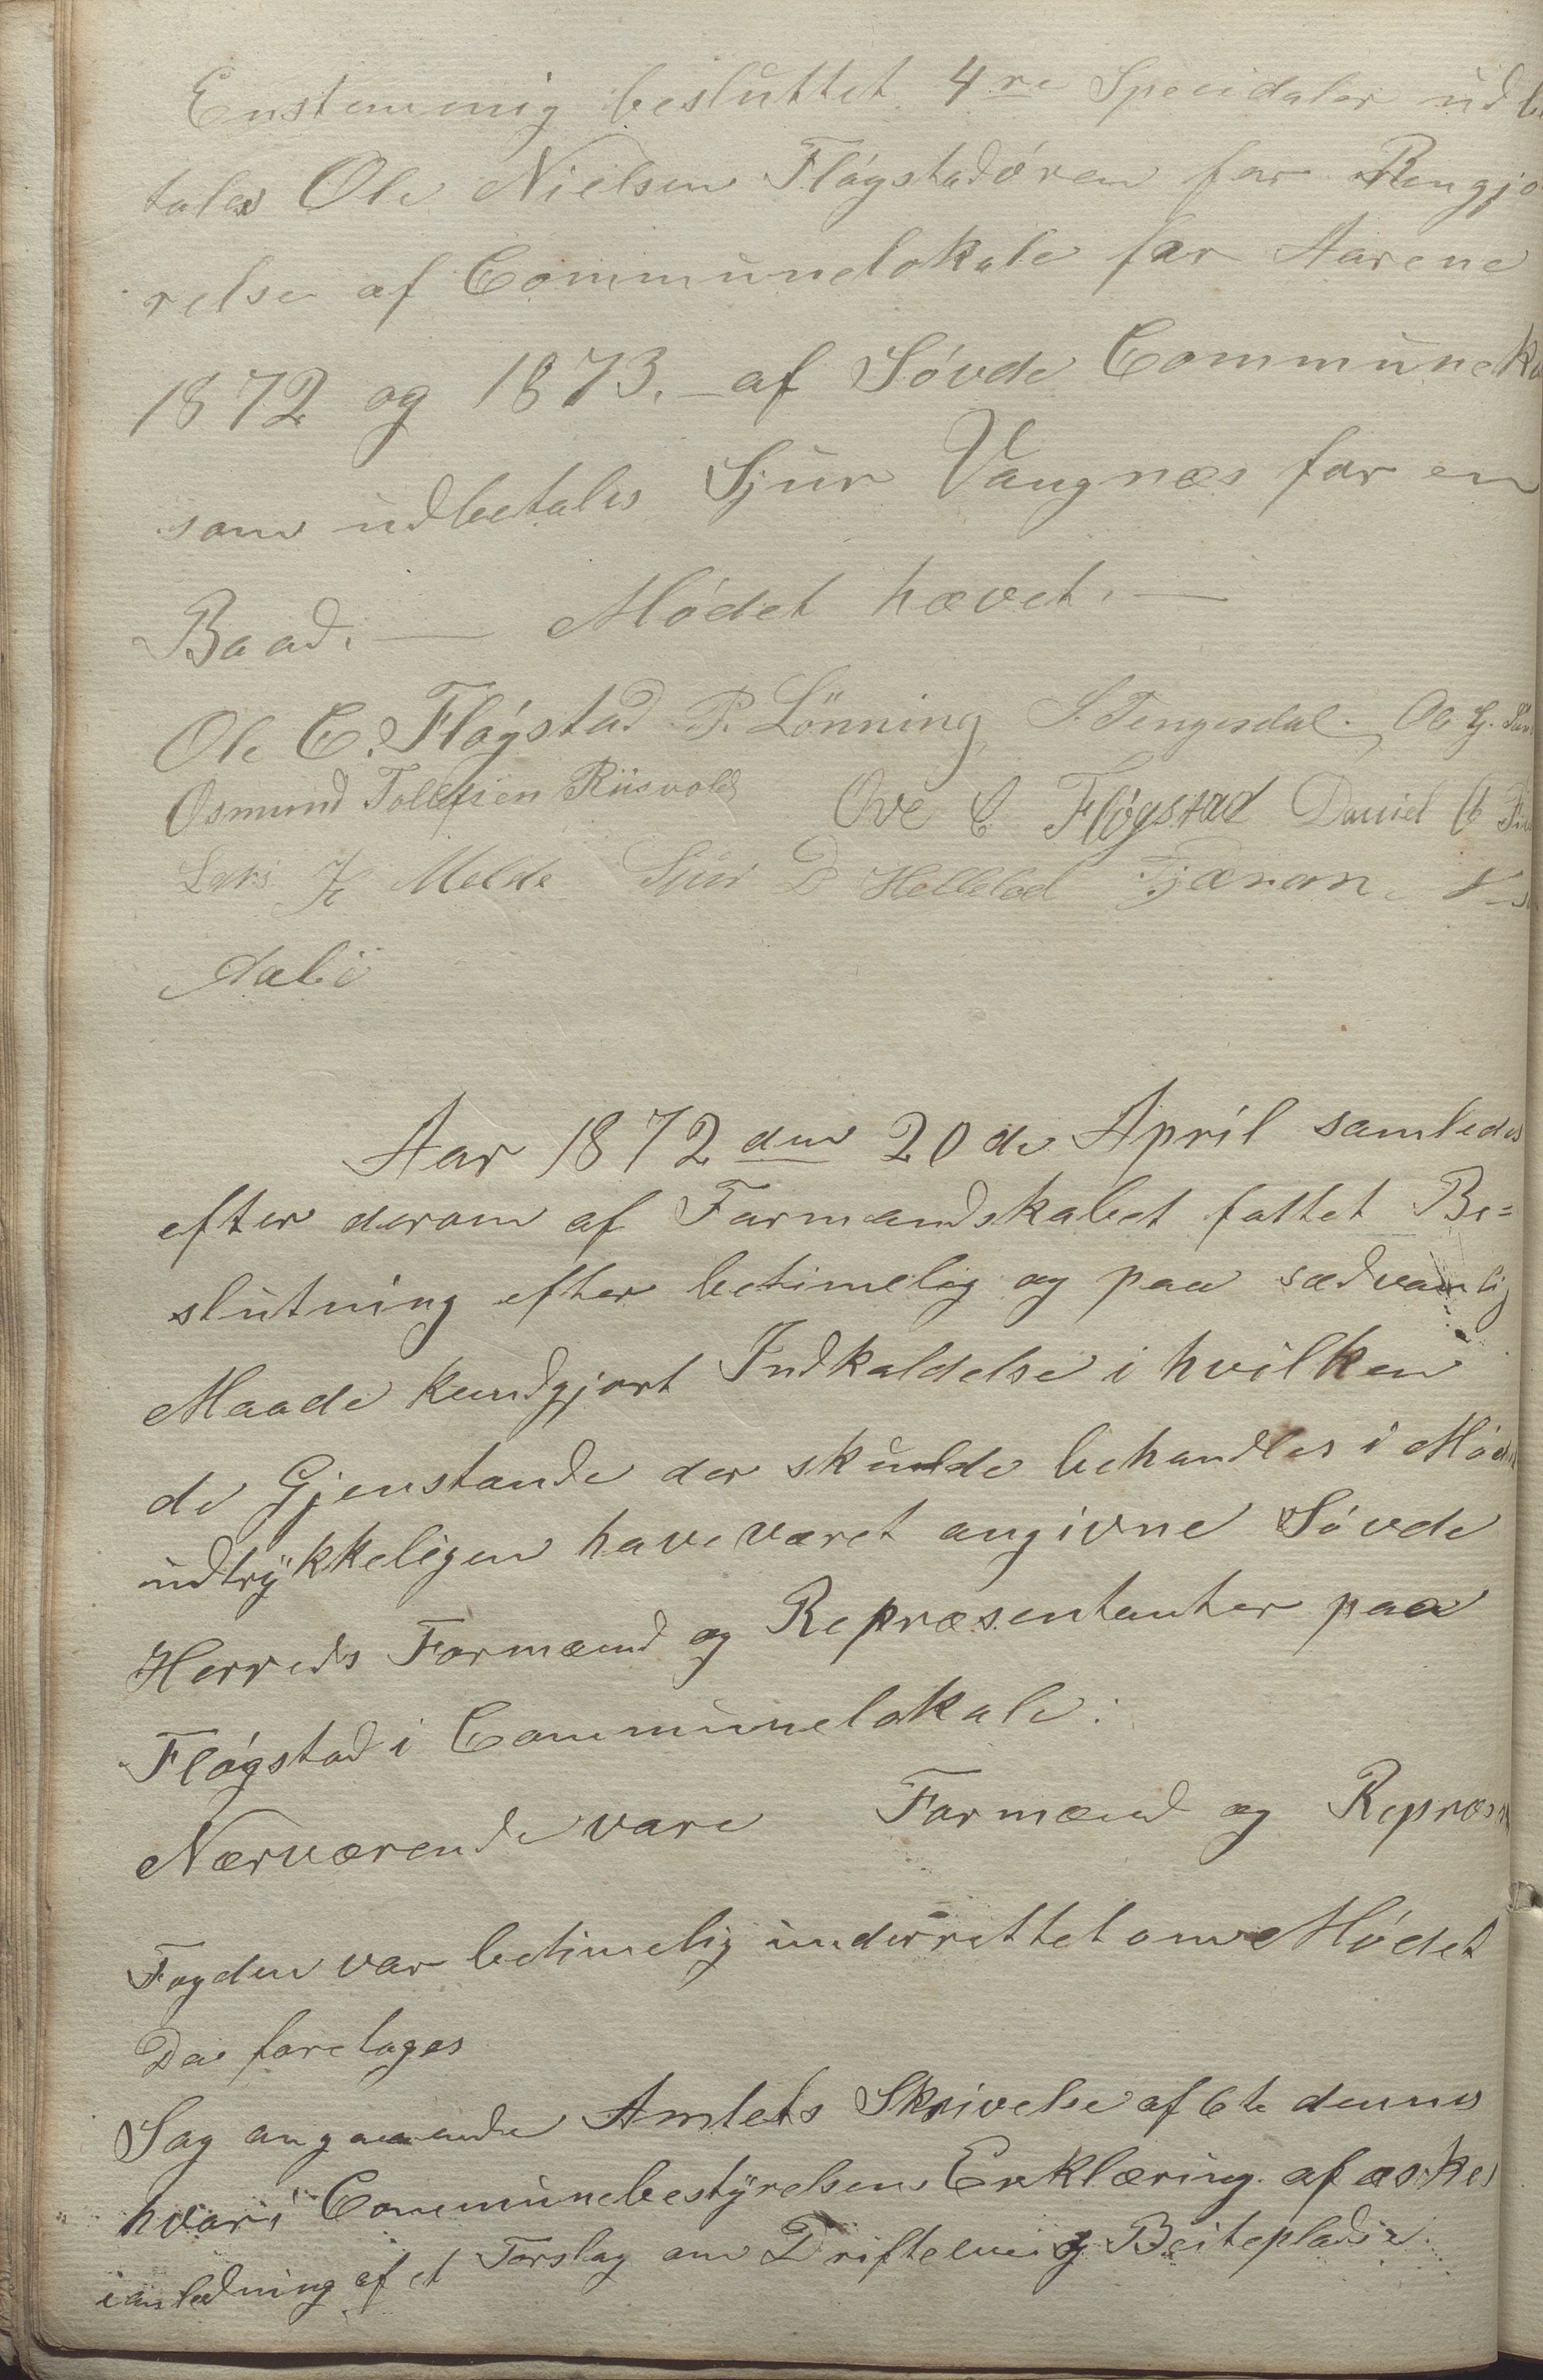 Enstemmig besluttet 4re Specidaler udb
tales Ole Nielsen Flógstadóren for Rengjó
relse af Communelokale for Aarene
1872 og 1873. - af Sóvde Communek
som udbetales Sjur Vangnæs for en
Baad. — Módet hævet. —
Ole C. Flógstad P. Lönning S. Tengesdal. Ole G.
Osmund Tollefsen Riisvold Ove C Flógstad Daniel
Lars K Melde Sjur D Helleland Fjæran.
dalí
Aar 1872 den 20de April samledes
efter derom af Formandskabet fattet Be=
slutning efter betimelig og paa sædvanlig
Maade kundgjort Indkaldelse i hvilken
de Gjenstande der skulde behandles i Mód
udtrÿkkeligen have været angivne Sóvde
Herreds Formænd og Repræsentanter paa
Flógstad i Communelokale:
Nærværende vare Formænd og Repræs
Fogden var betimelig underrettet om Módet
Da foretoges
Sag angaaende Amtets Skrivelse af 6te dennes
hvori Communebestÿrelsens Erklæring afæskes
i anledning af et Forslag om Drifteveie og Beitepladse